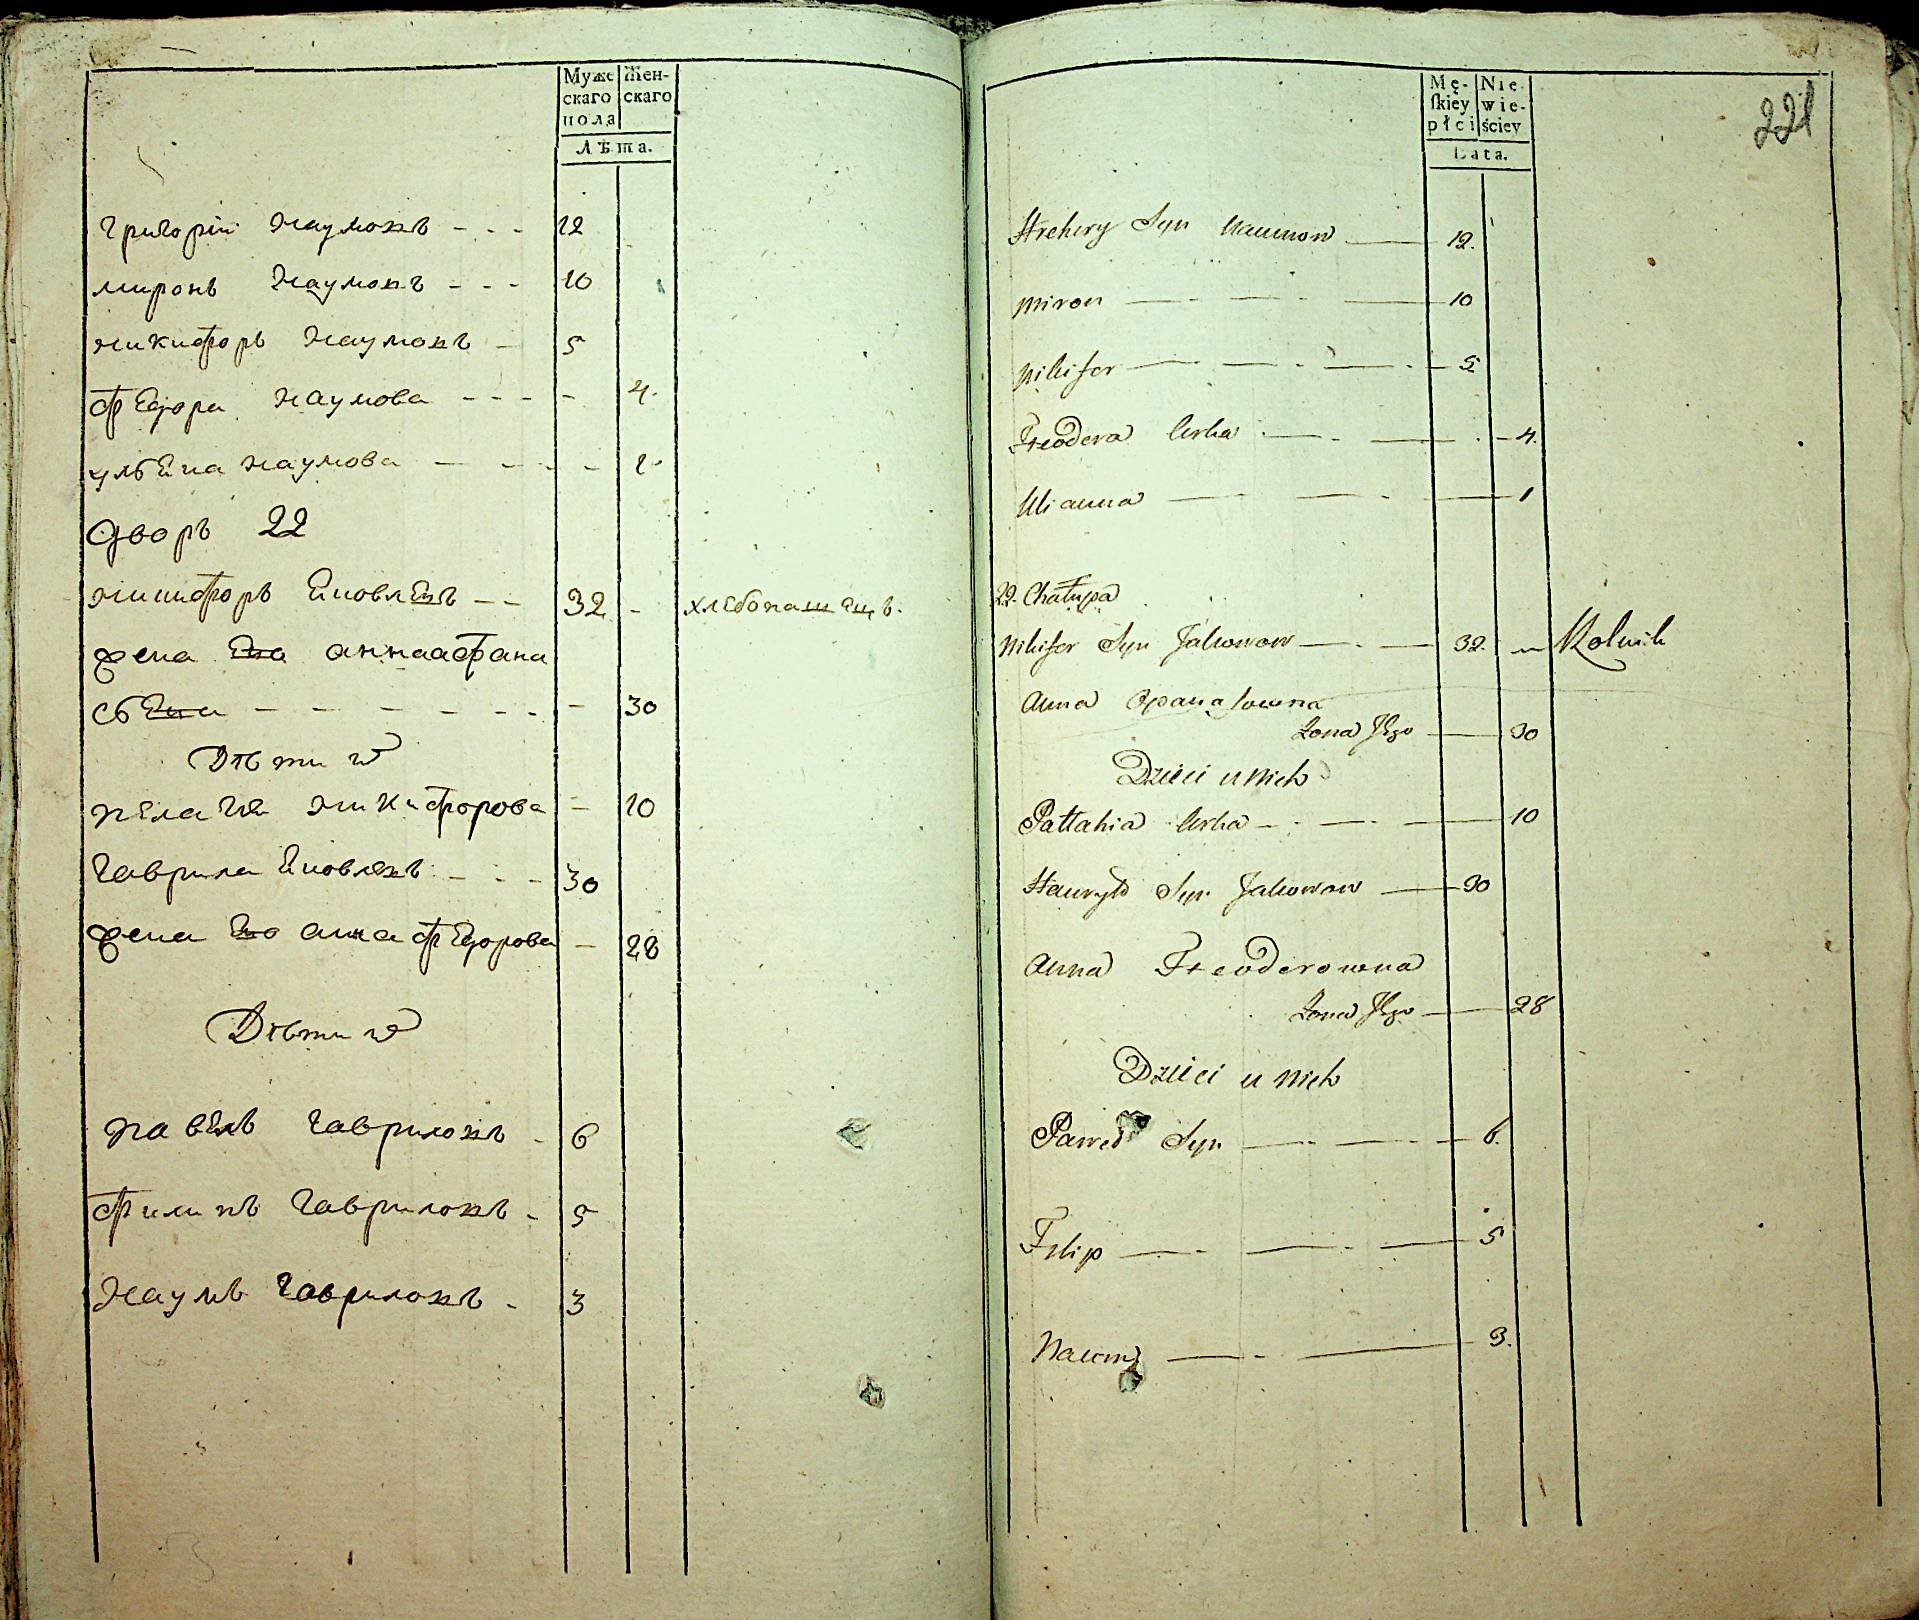 Муже
скаго
пола
Жен-
скаго
Лѣта.
Григорій Наумовъ - - - 12
Миронъ Наумовъ - - - 10
Никифоръ Наумовъ - 5
Федора Наумова - - - - 4.
Ульена Наумова - - - - 1.
Дворъ 22
Никифоръ Яковлевъ - - 32 - хлебопашецъ.
Жена Ево Анна Афана
сьева - - - - - - - 30
Дѣти
Пелагѣя Никифорова - 10
Гаврила Яковлевъ - - - 30
Жена Ево Анна Федорова - 28
Дѣти
Павелъ Гавриловъ - 6
Филипъ Гавриловъ - 5
Наумъ Гавриловъ - 3
221
Mę-
ſkiey
płci
Nie
wie-
ściey
Lata.
Hrehory Syn Naumow — 12.
Miron — — — 10
Nikifor — — — 5
Fieodora Corka — — — 4.
Ulianna — — — 1
22. Chałupa
Nikifor Syn Jakowow — — 32. Rolnik
Anna Opanasowna
Zona Jego — 30
Dzieci u nich
Pałłahia Corka — — — 10
Hauryło Syn Jakowow — 30
Anna Fieoderowna
Zona Jego — 28
Dzieci u nich
Paweł Syn — — — 6.
Filip — — — 5
Naum — — 3.